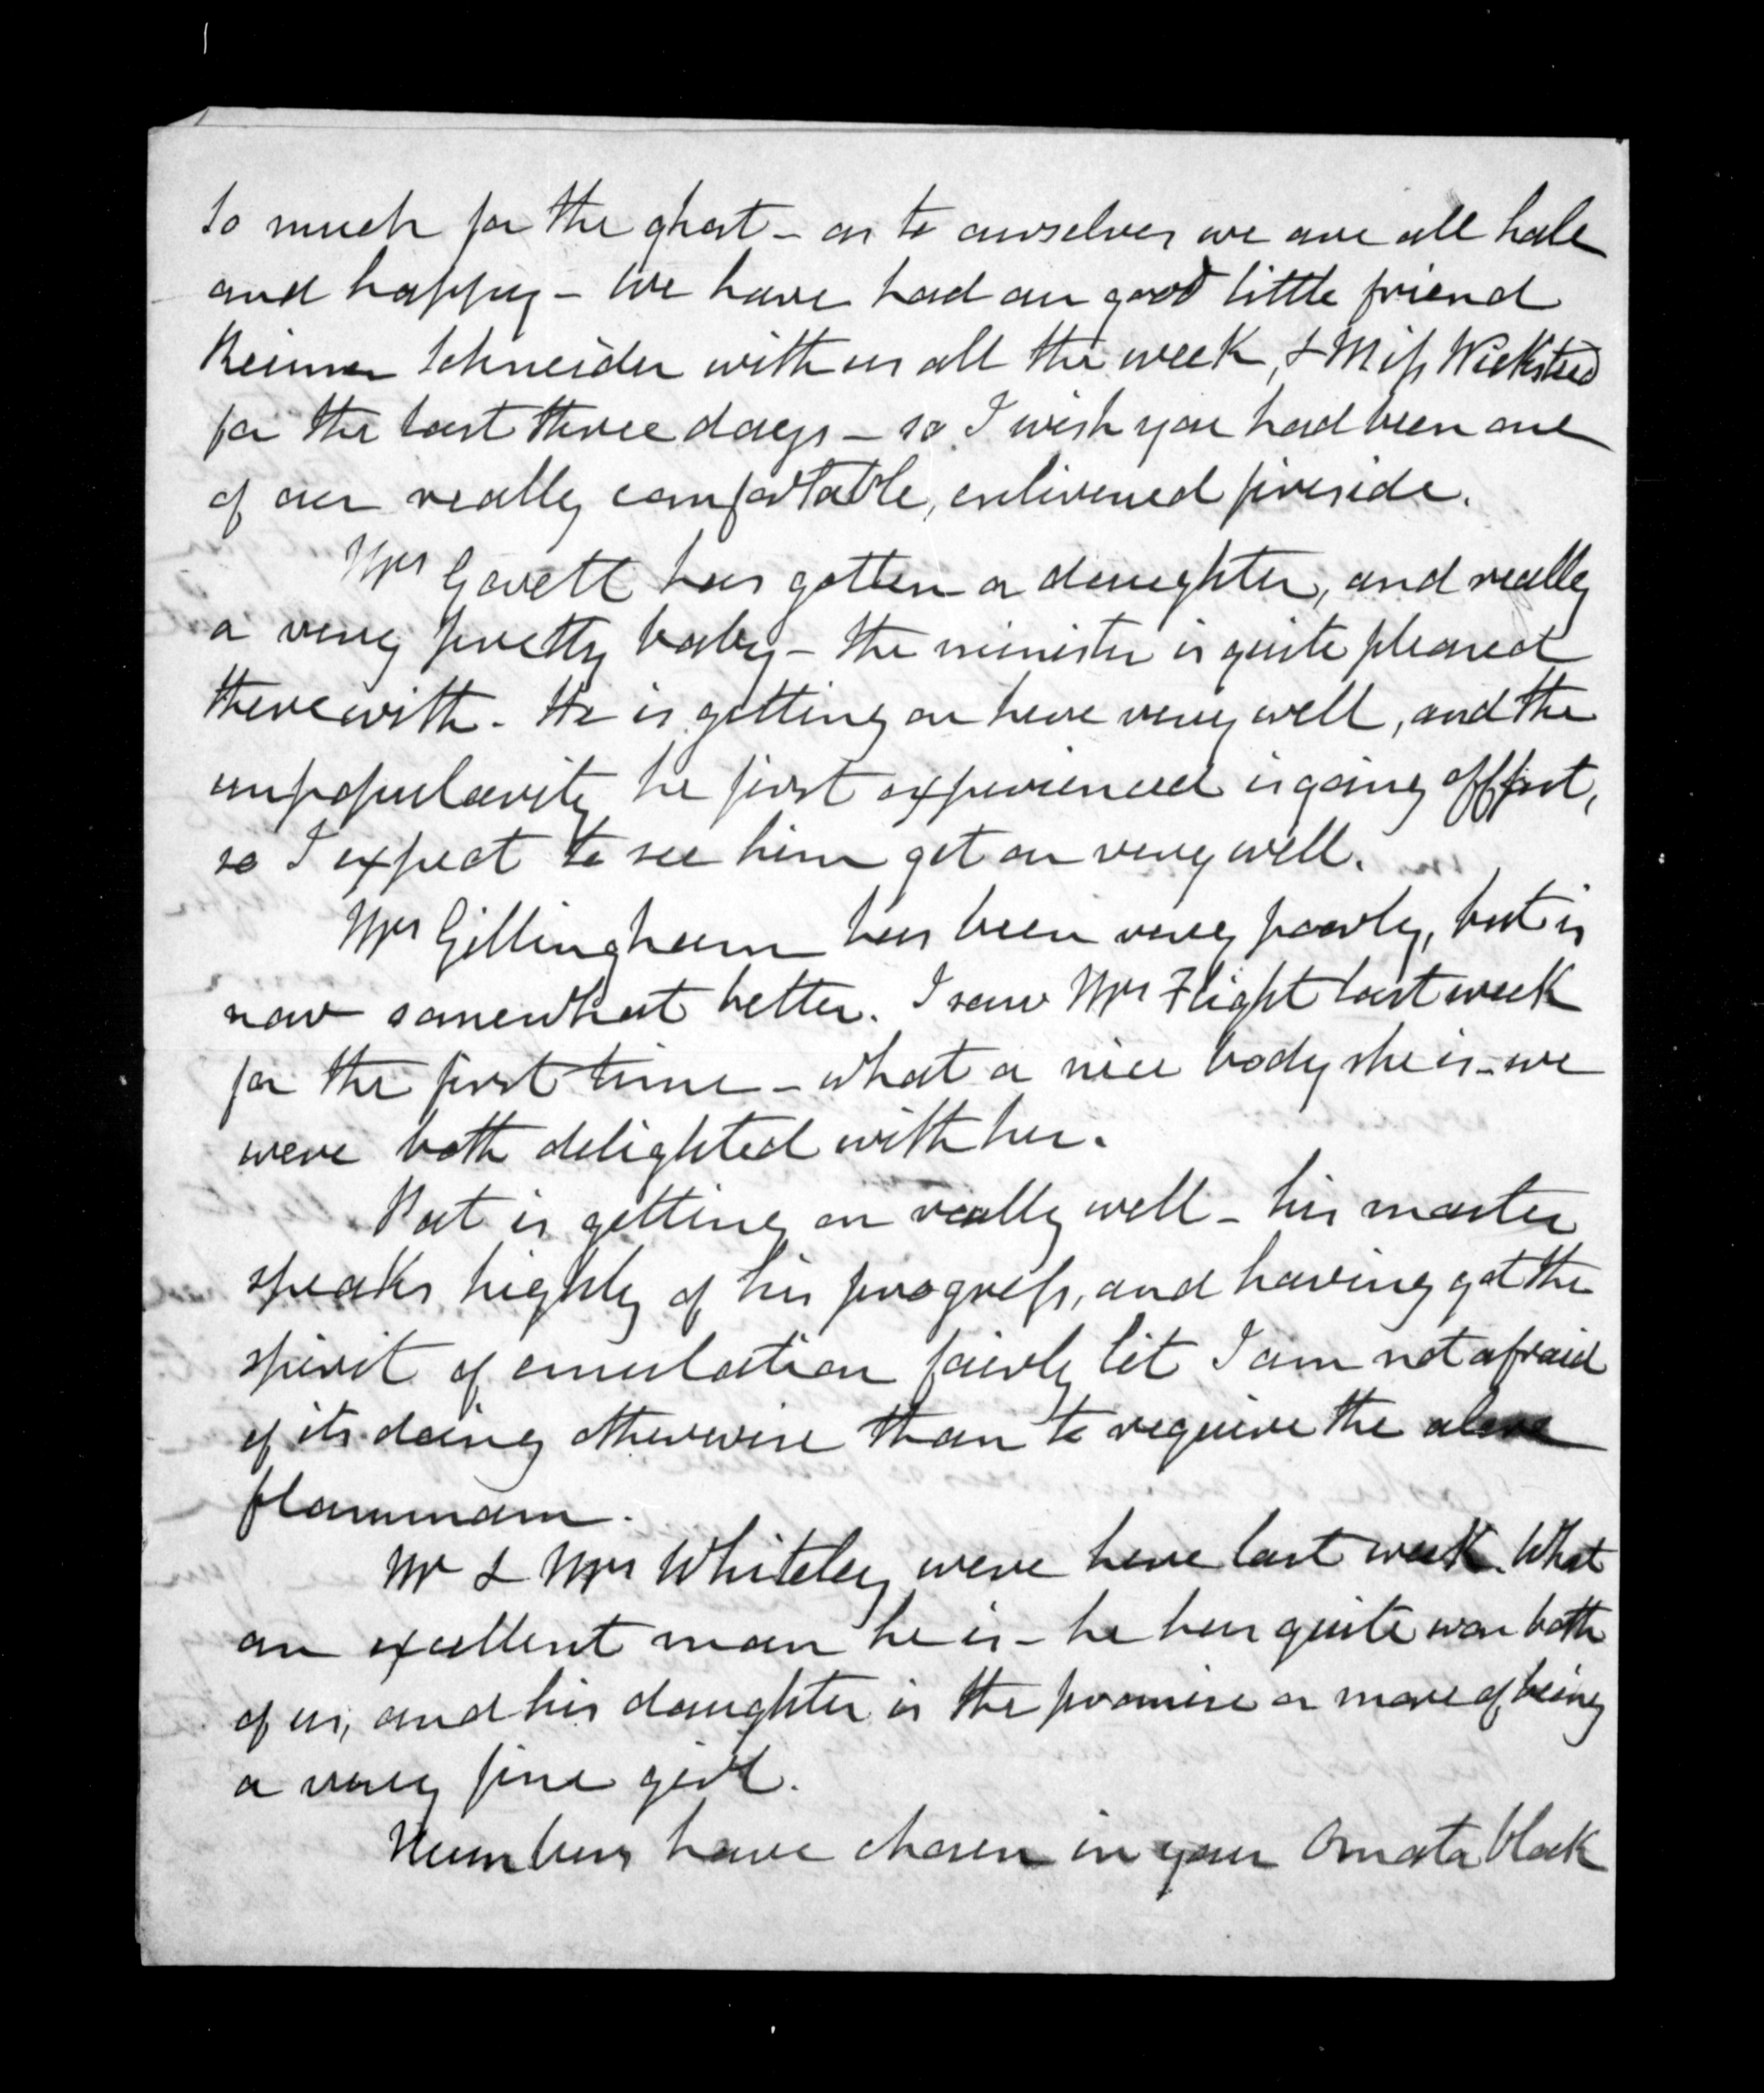 So much for the ghost - as to ourselves we are all hale
and happy - We have had our good little friend
Reimer Schneider with us all the week, & Miss Wicksteed
for the last three days - so I wish you had been one
of our really comfortable, enlivened fireside.
Mrs Govett has gotten a daughter, and really
a very pretty baby - the minister is quite pleased
therewith. He is getting on here very well, and the
unpopularity he first experienced is going off fast,
so I expect to see him get on very well.
Mrs Gillingham has been very poorly, but is
now somewhat better. I saw Mrs Flight last week
for the first time - what a nice body she is - we
were both delighted with her.
Pat is getting on really well - his master
speaks highly of his progress, and having got the
spirit of emulation fairly lit I am not afraid
of its doing otherwise than to require the alere
flammam.
Mr & Mrs Whiteley were here last week. What
an excellent man he is - he has quite won both
of us, and his daughter is the promise or more of being
a very fine girl.
Numbers have chosen in your Omata block